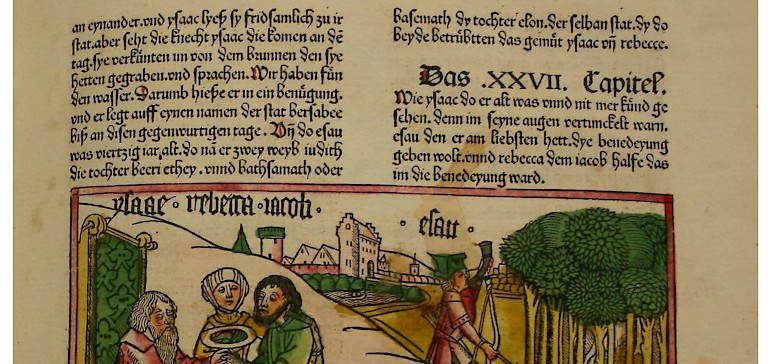 an eynander. vnd ysaac lyeß sy fridsamlich zu ir
stat. aber seht die knecht ysaac die komen an dē
tag. sye verkünten im von dem brunnen den sye
hetten gegraben. vnd sprachen. Wir haben fūn
den wasser. Darumb hieße er in ein benügung.
vnd er legt auff eynen namen der stat bersabee
biß an disen gegenwurtigen tage. Vn̄ do esau
was viertzig iar alt. do nā er zwey weyb iudith
die tochter beeri ethey. vnnd bathsamath oder
basemath dy tochter elon. der selban stat. dy do
beyde betrübtten das gemüt ysaac vn̄ rebecce.
Das .XXVII. Capitel.
Wie ysaac do er alt was vnnd nit mer kūnd ge
sehen. denn im seyne augen vertunckelt warn.
esau den er am liebsten hett. dye benedeyung
geben wolt. vnnd rebecca dem iacob halfe das
im die benedeyung ward.
ysaac · rebecca · iacob ·
· esau ·